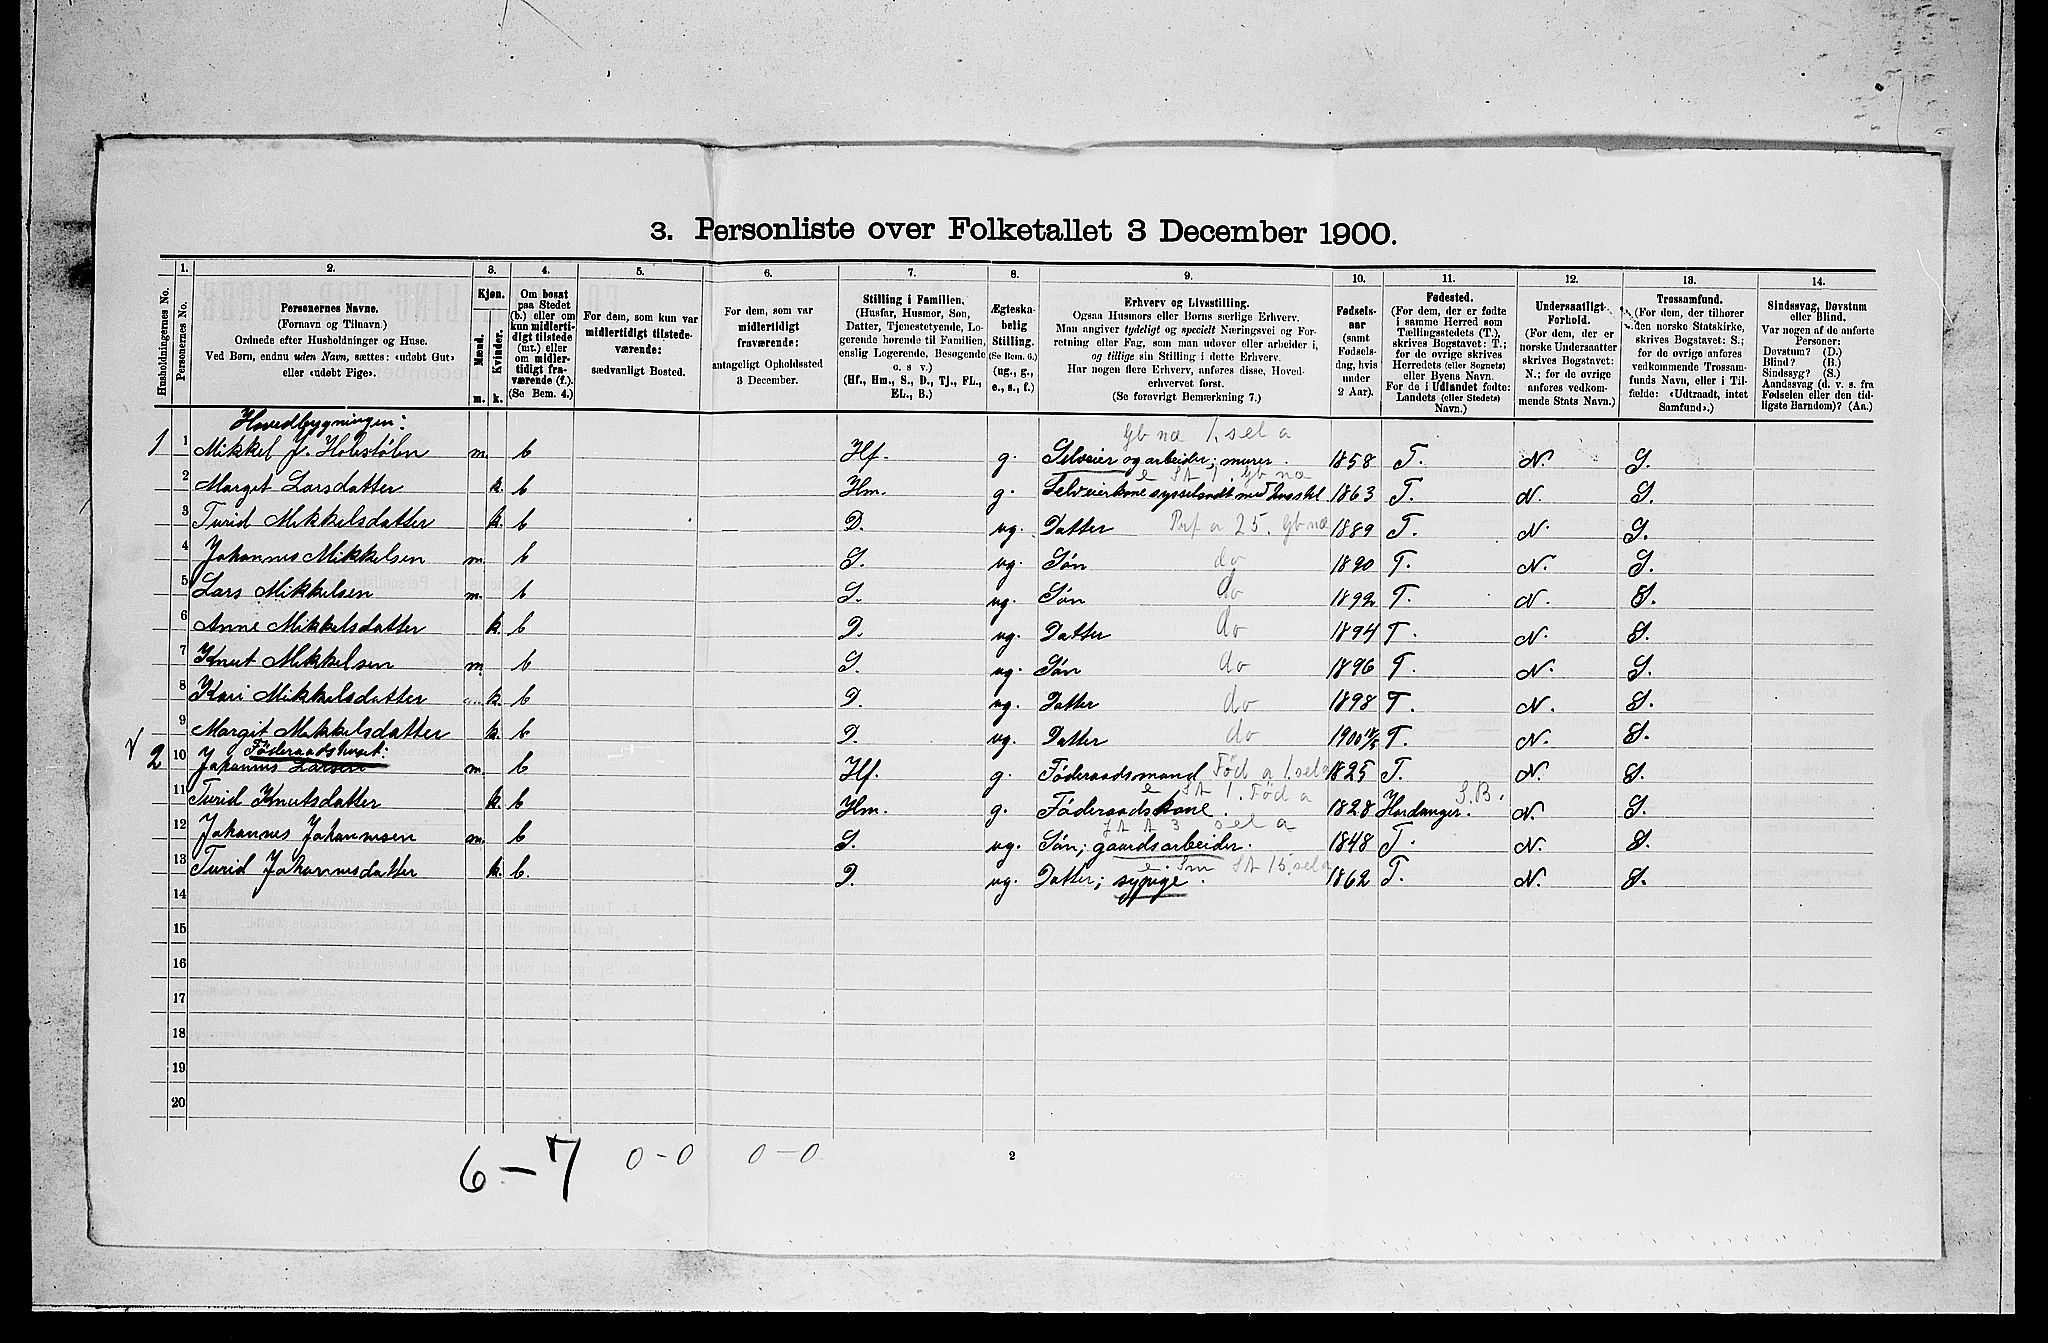 3. Personliste over Folketallet 3 December 1900.
1. 2. 3. 4. 5. 6. 7. 8. 9. 10. 11. 12. 13. 14.
Husholdningernes No.
Personernes No.
Personernes Navne.
(Fornavn og Tilnavn.)
Ordnede efter Husholdninger og Huse.
Ved Børn, endnu uden Navn, sættes: «udøbt Gut»
eller «udøbt Pige».
Kjøn.
Mænd.
Kvinder.
m. k.
Om bosat
paa Stedet
(b.) eller om
kun midlerti-
digt tilstede
(mt.) eller
om midler-
tidigt fra-
værende (f.).
(Se Bem. 4.)
For dem, som kun var
midlertidigt tilstede-
værende:
sædvanligt Bosted.
For dem, som var
midlertidigt
fraværende:
antageligt Opholdssted
3 December.
Stilling i Familien.
(Husfar, Husmor, Søn,
Datter, Tjenestetyende, Lo-
gerende hørende til Familien,
enslig Logerende, Besøgende
o. s v.)
(Hf., Hm., S., D., Tj., FL.,
EL., B.)
Ægteska-
belig
Stilling.
(Se Bem. 6.)
(ug., g.,
e., s., f.)
Erhverv og Livsstilling.
Ogsaa Husmors eller Børns særlige Erhverv.
Man angiver tydeligt og specielt Næringsvei og For-
retning eller Fag, som man udover eller arbeider i,
og tillige sin Stilling i dette Erhverv.
Har nogen flere Erhverv, anføres disse, Hoved-
erhvervet først.
(Se forøvrigt Bemærkning 7.)
Fødsels-
aar
(samt
Fødsels-
dag, hvis
under
2 Aar).
Fødested.
(For dem, der er fødte
i samme Herred som
Tællingsstedets (T.),
skrives Bogstavet: T.;
for de øvrige skrives
Herredets (eller Sognets)
eller Byens Navn.
For de i Udlandet fødte:
Landets (eller Stedets)
Navn.)
Undersaatligt-
Forhold.
(For dem, der er
norske Undersaatter
skrives Bogstavet:
N.; for de øvrige
anføres vedkom-
mende Stats Navn.)
Trossamfund.
(For dem, der tilhører
den norske Statskirke,
skrives Bogstavet: S.;
for de øvrige anføres
vedkommende Trossam-
funds Navn, eller i Til-
fælde: «Udtraadt, intet
Samfund».)
Sindssvag, Døvstum
eller Blind.
Var nogen af de anførte
Personer:
Døvstum? (D.)
Blind? (B.)
Sindssyg? (S.)
Aandssvag (d. v. s. fra
Fødselen eller den tid-
ligste Barndom)? (Aa.)
Hovedbygningen:
Gb næ 1. sel a
1 1 Mikkel J. Holestølen m. b Hf. g. Selveier og arbeider; murer. 1858 T. N. S.
e St 1. Gb næ
2 Margit Larsdatter k. b Hm. g. Selveierkone sysselsadt med husstel 1863 T. N. S.
3 Turid Mikkelsdatter k. b D. ug. Datter Prf a 25. Gb næ 1889 T. N. S.
4 Johannes Mikkelsen m. b S. ug. Søn do 1890 T. N. S.
5 Lars Mikkelsen m. b S. ug. Søn do 1892 T. N. S.
6 Anne Mikkelsdatter k. b D. ug. Datter do 1894 T. N. S.
7 Knut Mikkelsen m b S. ug. Søn do 1896 T. N. S.
8 Kari Mikkelsdatter k. b D. ug. Datter do 1898 T. N. S.
9 Margit Mikkelsdatter k. b D. ug. Datter do 1900 T. N. S.
Föderaadshuset:
2 10 Johannes Larsen m. b Hf. g. Föderaadsmand Föd a 1. sel a 1825 T. N. S.
e St 1. Föd a S.B.
11 Turid Knutsdatter k. b Hm. g. Föderaadskone. 1828 Hardanger. N. S.
St A 3 sel a
12 Johannes Johannesen m. b S. ug. Søn; gaardsarbeider. 1848 T. N. S.
e Sm St 15. sel a
13 Turid Johannesdatter k. b. D. ug. Datter; sypige. 1862 T. N. S.
14
15
16
17
18
19
20
6-7 0-0 0-0
2